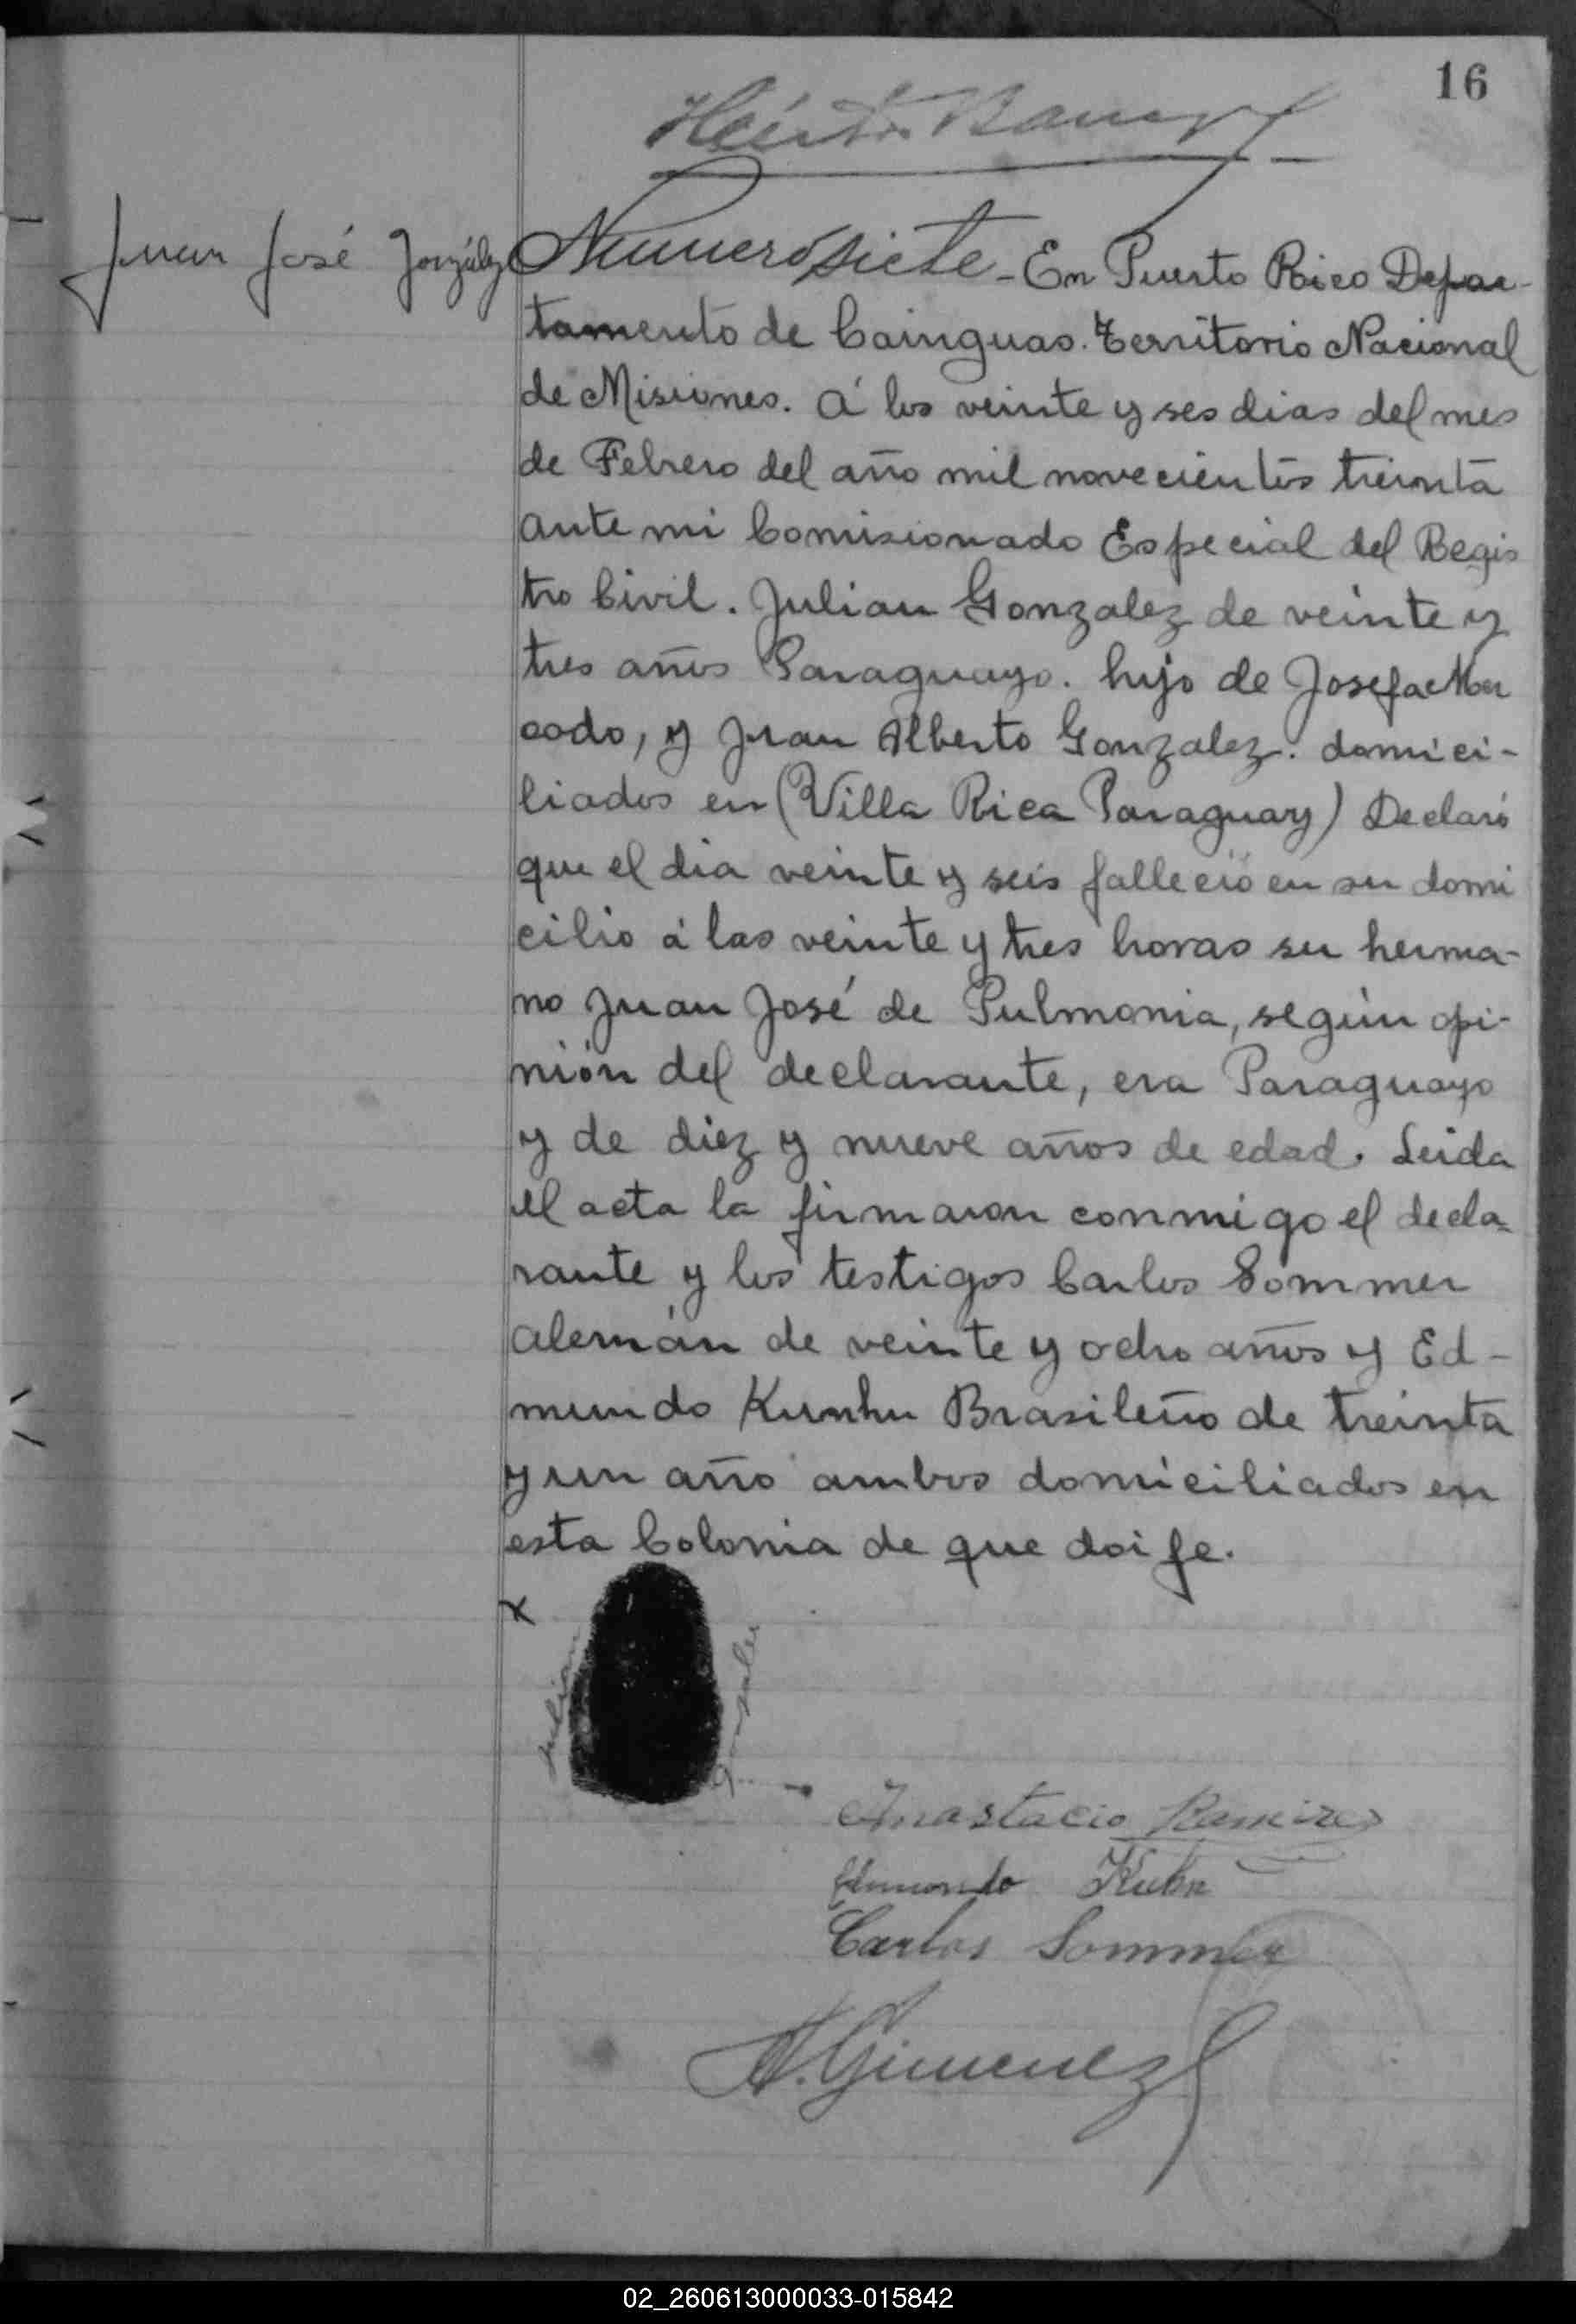 16
Juan José González
Numero siete - En Puerto Rico Depar-
tamento de Cainguas. Territorio Nacional
de Misiones. á los veinte y ses dias del mes
de Febrero del año mil novecientos treinta
ante mi Comisionado Especial del Regis
tro Civil. Julian Gonzalez de veinte y
tres años Paraguayo. hijo de Josefa Mer
cado, y Juan Alberto Gonzalez. domici-
liados en (Villa Rica Paraguay) Declaró
que el dia veinte y seis falleció en su domi
cilio á las veinte y tres horas su herma-
no Juan José de Pulmonia, según opi-
nión del declarante, era Paraguayo
y de diez y nueve años de edad. Leida
el acta la firmaron conmigo el decla-
rante y los testigos Carlos Sommer
alemán de veinte y ocho años y Ed-
mundo Kunhn Brasileño de treinta
y un año ambos domiciliados en
esta Colonia de que doi fe.
x
Julian
Gonzalez
Anastacio Ramirez
Edmundo Kuhn
Carlos Sommer
A. Gimenez
02_260613000033-015842